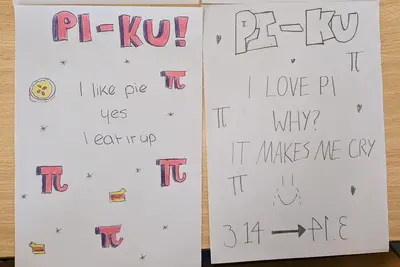 PI-KU!
π
I like pie
yes
I eat it up
π
π
π
PI-KU
π
I LOVE PI
π
WHY?
IT MAKES ME CRY
π
3.14 → PI.E